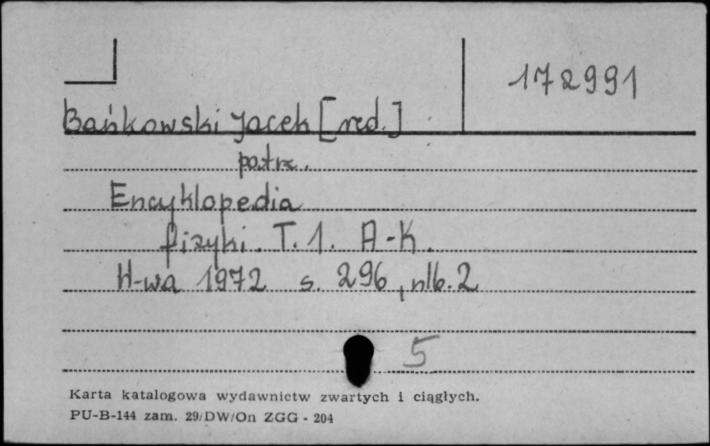 172991
Bańkowski Jacek [red.]
patrz.
Encyklopedia
fizyki. T. 1. A-K.
W-wa 1972 s. 296, nlb. 2
5
Karta katalogowa wydawnictw zwartych i ciągłych.
PU-B-144 zam. 29/DW/On ZGG - 204